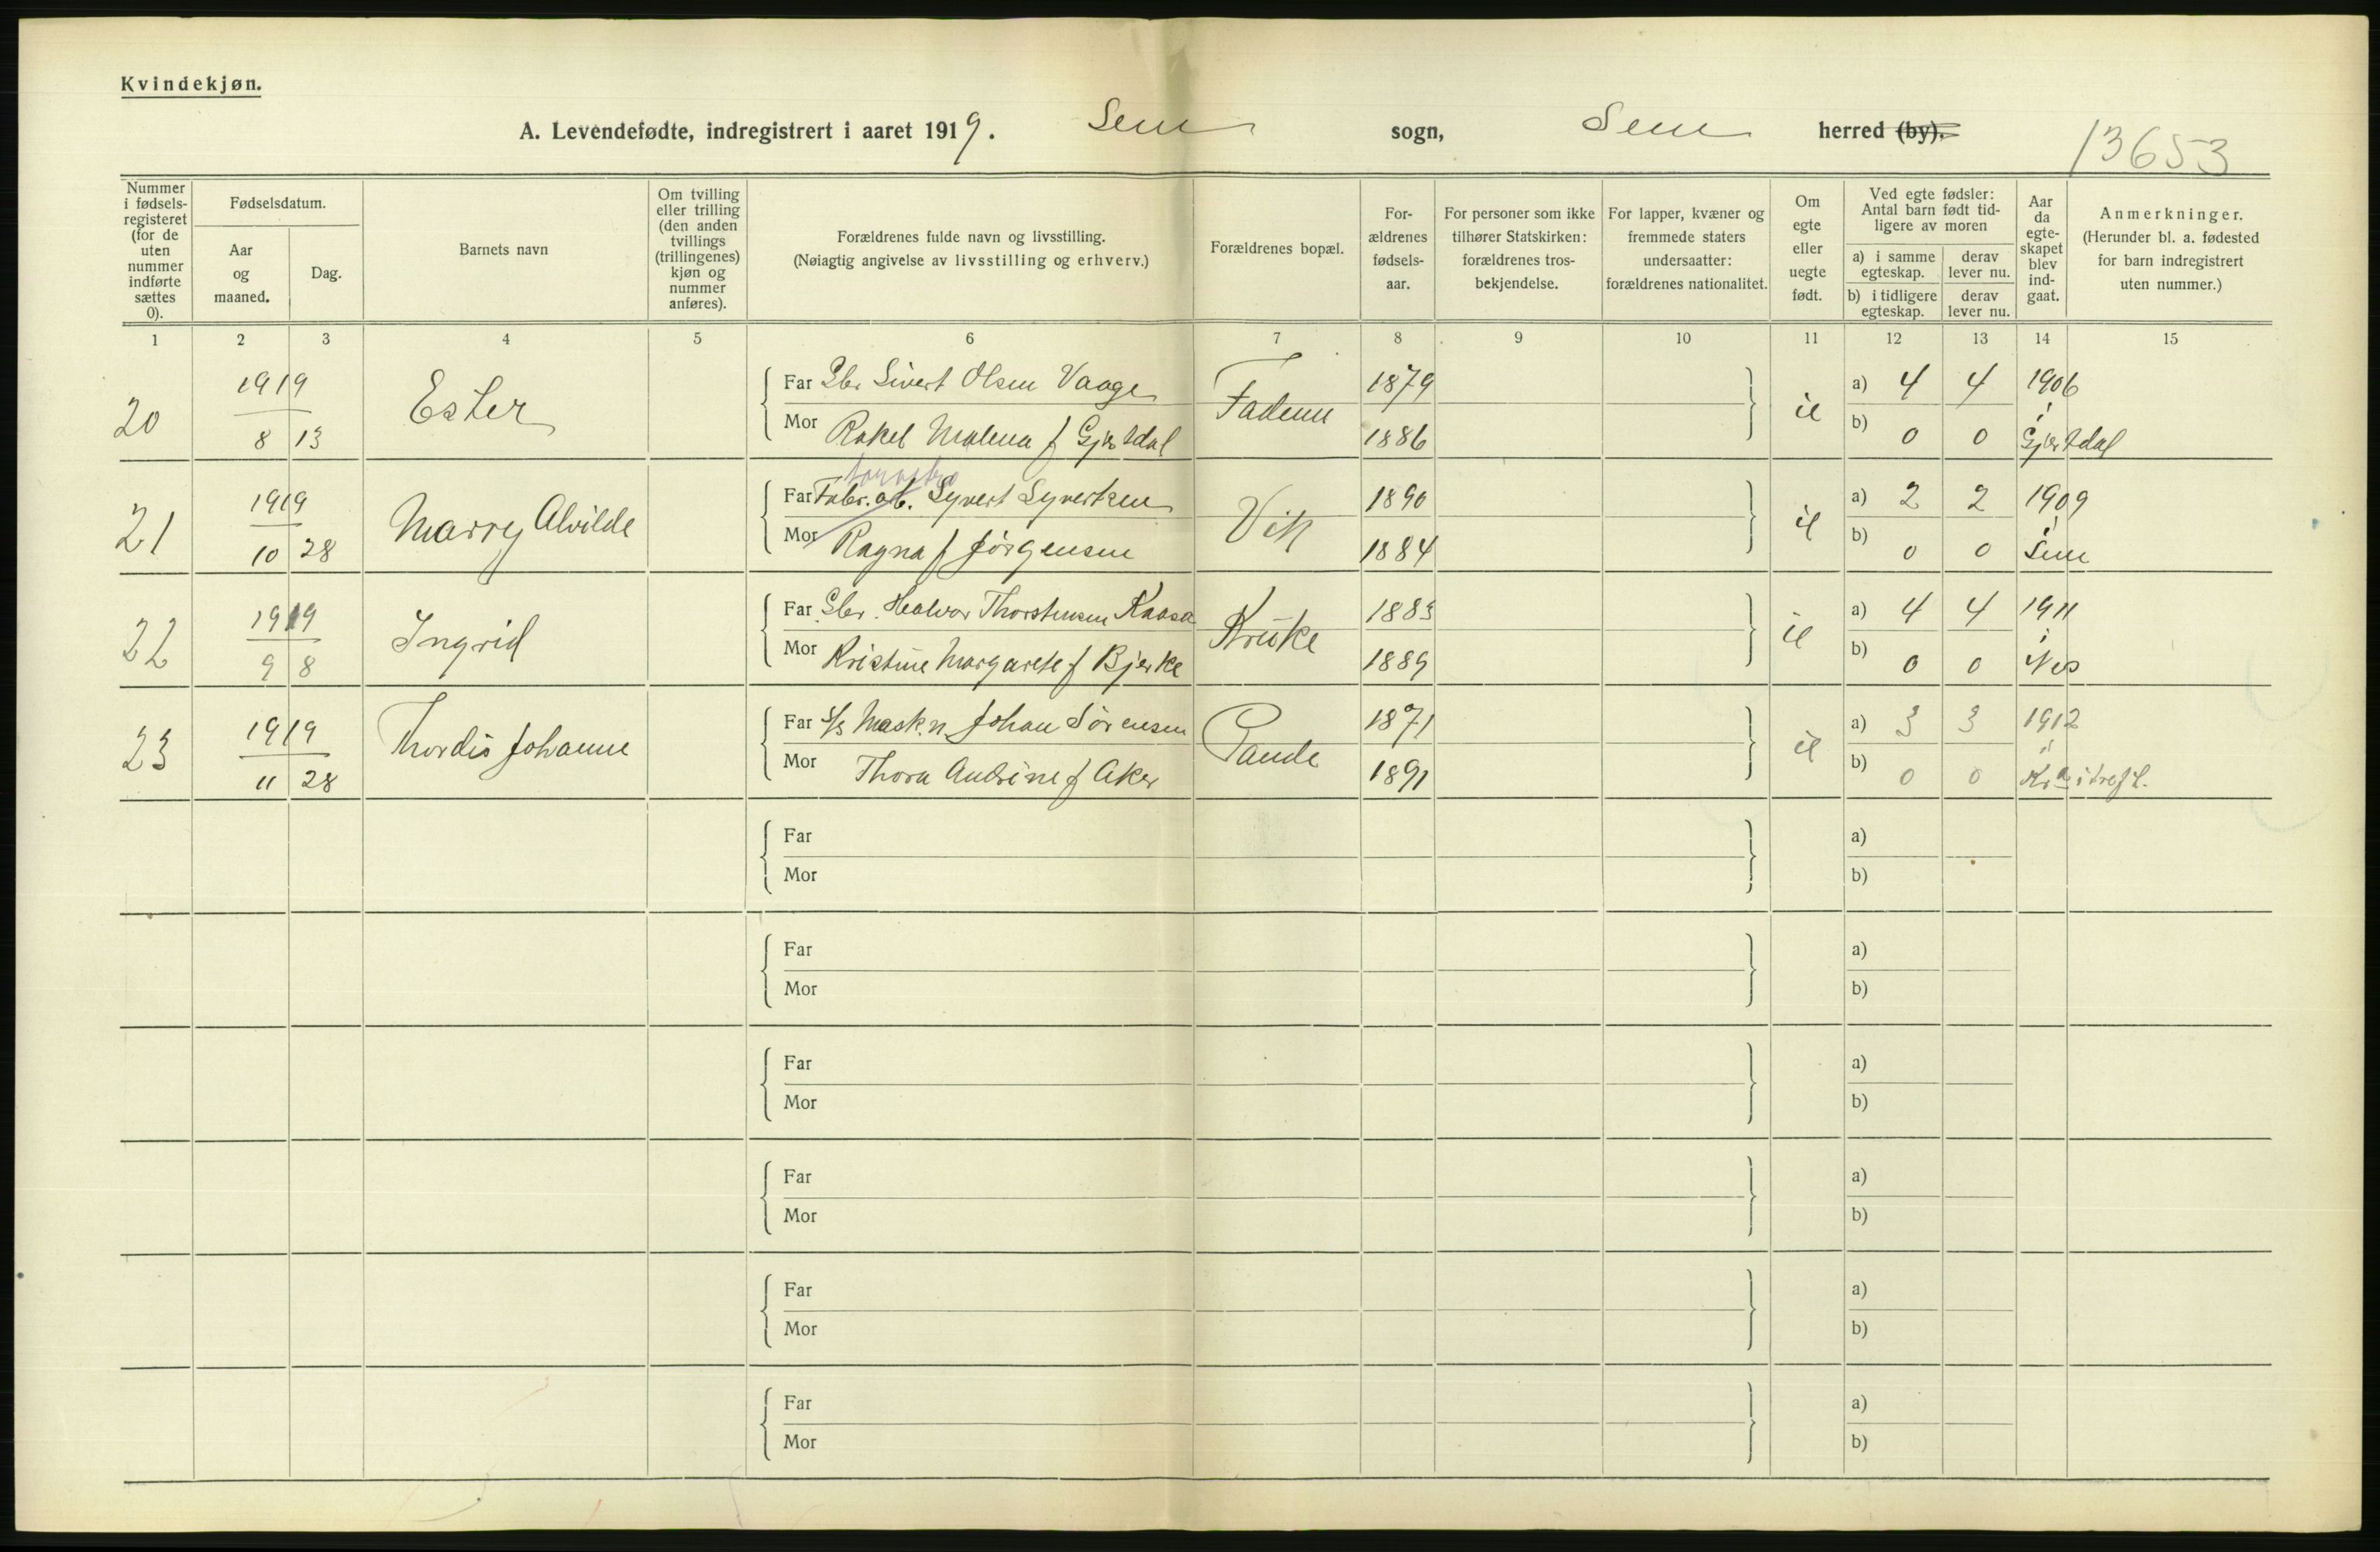 Kvindekjøn.
A. Levendefødte, indregistrert i aaret 1919. Sem sogn, Sem herred (by).
13653
Nummer i fødsels-registeret (for de uten nummer indførte sættes 0).
Fødselsdatum.
Aar og maaned.
Dag.
Barnets navn
Om tvilling eller trilling (den anden tvillings (trillingenes) kjøn og nummer anføres).
Forældrenes fulde navn og livsstilling.
(Nøiagtig angivelse av livsstilling og erhverv.)
Forældrenes bopæl.
For-ældrenes fødsels-aar.
For personer som ikke tilhører Statskirken: forældrenes tros-bekjendelse.
For lapper, kvæner og fremmede staters undersaatter: forældrenes nationalitet.
Om egte eller uegte født.
Ved egte fødsler: Antal barn født tid-ligere av moren
a) i samme egteskap.
derav lever nu.
b) i tidligere egteskap.
derav lever nu.
Aar da egte-skapet blev ind-gaat.
Anmerkninger.
(Herunder bl. a. fødested for barn indregistrert uten nummer.)
1 2 3 4 5 6 7 8 9 10 11 12 13 14 15
20 1919 8 13 Ester
Far Gbr Sivert Olsen Vaage Fadum 1879 a) 4 4 1906
Mor Rakel Malena f Gjestdal 1886 b) 0 0 i Gjestdal
21 1919 10 28 Marry Alvilde
Far Fabr. arb. Syvert Syvertsen Vik 1890 a) 2 2 1909
Mor Ragna f Jørgensen 1884 b) 0 0 i Sem
22 1919 9 8 Ingrid
Far Gbr. Halvor Thorstensen Kaasa 1883 a) 4 4 1911
Mor Kristine Margarete f Bjerke 1889 b) 0 0 i Nes
23 1919 11 28 Thordis Johanne
Far Mask. Johan Sørensen 1871 a) 3 3 1912
Mor Thora Andrine f Aker 1891 b) 0 0 i Kra
Far a)
Mor b)
Far a)
Mor b)
Far a)
Mor b)
Far a)
Mor b)
Far a)
Mor b)
Far a)
Mor b)